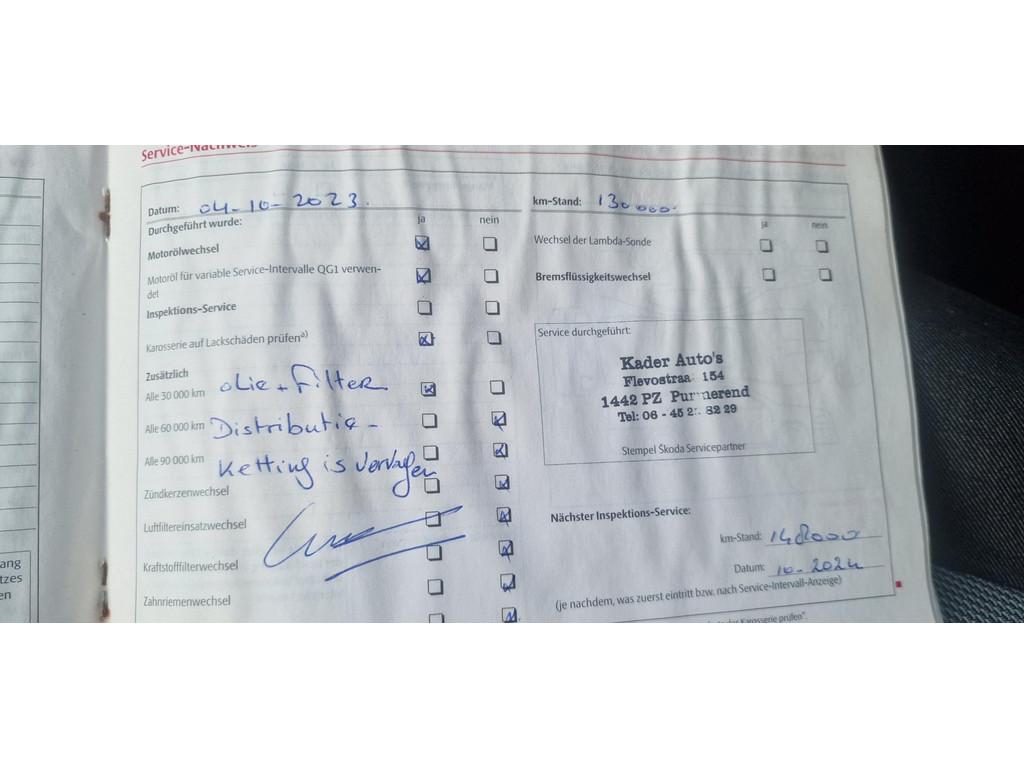 Service-Nachweis
Datum: 04-10-2023.
km-Stand: 130000.
Durchgeführt wurde:
ja nein
ja nein
Motorölwechsel
Wechsel der Lambda-Sonde
Motoröl für variable Service-Intervalle QG1 verwen-
det
Bremsflüssigkeitswechsel
Inspektions-Service
Karosserie auf Lackschäden prüfen a)
Zusätzlich
Alle 30 000 km olie + Filter
Alle 60 000 km Distributie -
Alle 90 000 km Ketting is
Zündkerzenwechsel
Luftfiltereinsatzwechsel
Kraftstofffilterwechsel
Zahnriemenwechsel
Service durchgeführt:
Kader Auto's
154
1442 PZ Purmerend
Tel: 06 - 45 82 29
Stempel Škoda Servicepartner
Nächster Inspektions-Service:
km-Stand: 148000
Datum: 10-2024
(je nachdem, was zuerst eintritt bzw. nach Service-Intervall-Anzeige)
der Karosserie prüfen".
ang
tzes
en